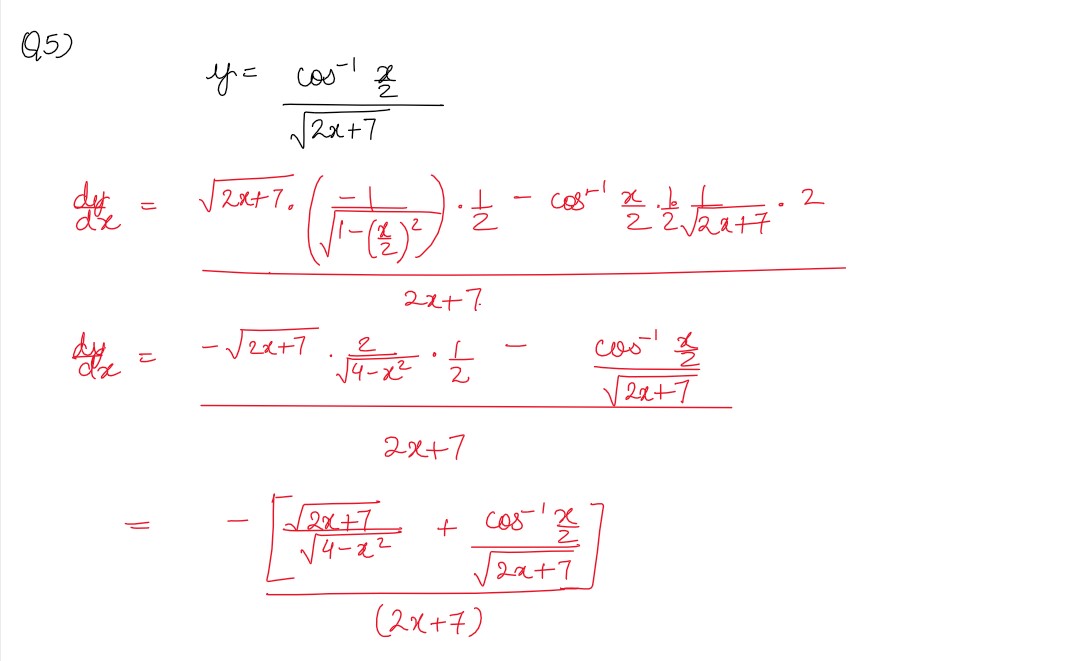 Q5)
y = cos⁻¹ x/2 / √(2x+7)
dy/dx = [√(2x+7) · (-1/√(1-(x/2)²)) · 1/2 - cos⁻¹ x/2 · 1/2 1/√(2x+7) · 2] / 2x+7
dy/dx = [-√(2x+7) · 2/√(4-x²) · 1/2 - cos⁻¹ x/2 / √(2x+7)] / 2x+7
= -[√(2x+7)/√(4-x²) + cos⁻¹ x/2 / √(2x+7)] / (2x+7)